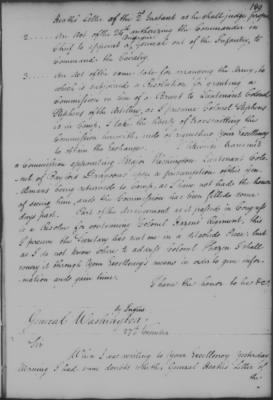 189
Heath's Letter of the 2d Instant as he shall judge proper
2. An Act of the 24th authorizing the Commander in
Chief to appoint a General out of the Infantry, to
Command the Cavalry
3. An Act of the same date for arranging the Army, to
which is subjoined a Resolution for granting a
Commission in lieu of a Brevet to Lieutenant Colonel
Stephens of the Artillery, as I presume Colonel Stephens
is in Camp, I take the liberty of transmitting the
Commission herewith, and of requesting your Excellency
to obtain the Exchange. I likewise transmit
a Commission appointing Major Washington Lieutenant Colo-
nel of Baylor's Dragoons upon a presumption of this Gen-
tleman's being returned to Camp, as I have not had the honor
of seeing him, and the Commission has been filled several
days past. Part of the Arrangement as it passed in Congress
is a Resolve for continuing Colonel Hazen's Regiment, this
I presume the Secretary has put on a distinct Piece: but
as I do not know where to address Colonel Hazen I shall
convey it through your Excellency's means in order to give infor-
mation and gain time.
I have the honor to be &c,
by Express
General Washington
27th November
Sir
When I was writing to your Excellency Yesterday
Morning I had some doubts whether General Heath's Letter of
the